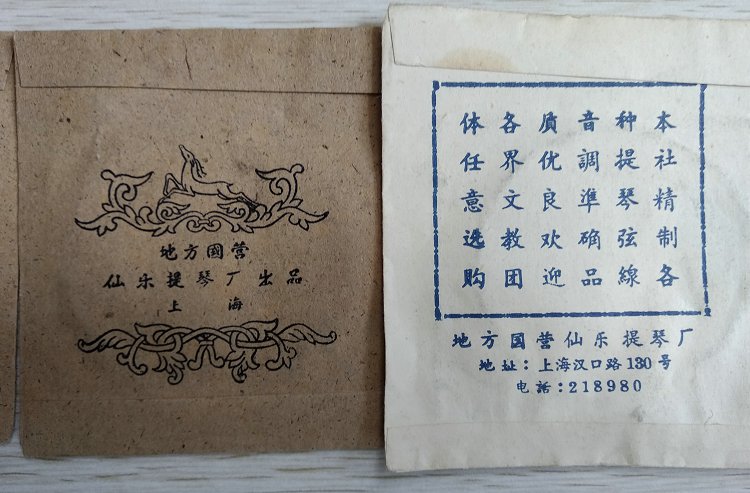 地方國营
仙乐提琴厂出品
上海
本社精制各
种提琴弦線
音調準确品
质优良欢迎
各界文教团
体任意选购
地方国营仙乐提琴厂
地址:上海汉口路130号
电話:218980